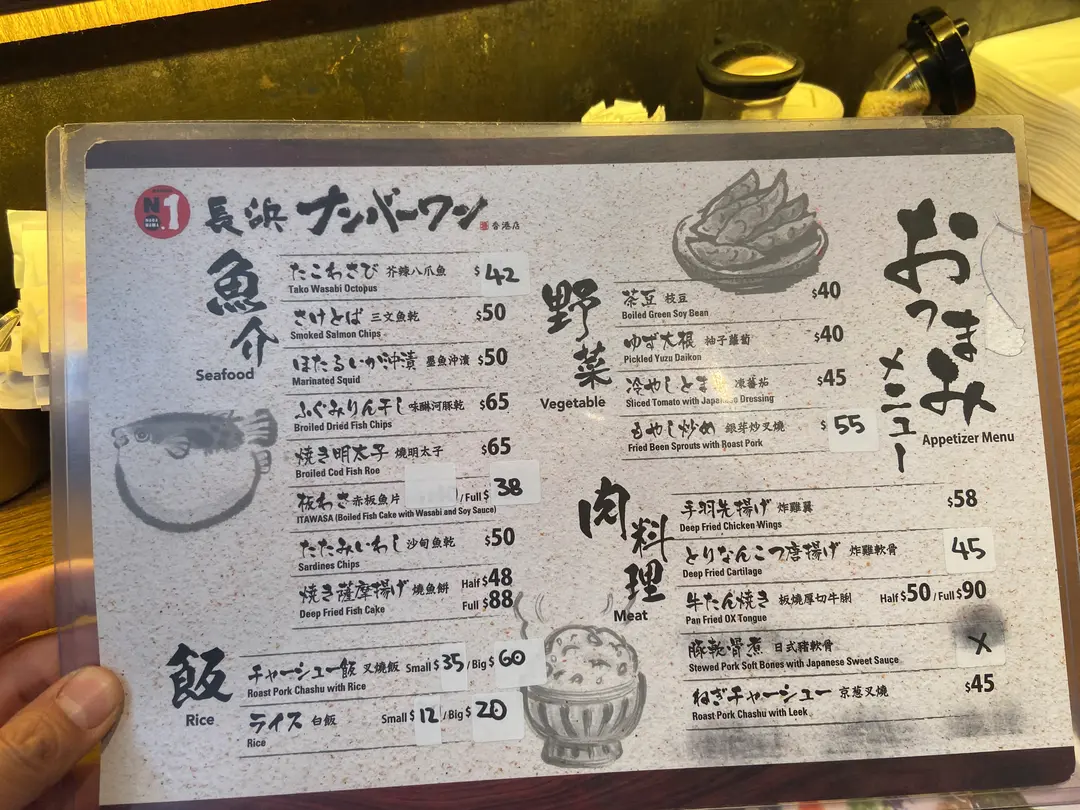 N 1
長浜 ナンバーワン
香港店
魚介
Seafood
たこわさび 芥辣八爪魚 $42
Tako Wasabi Octopus
さけとば 三文魚乾 $50
Smoked Salmon Chips
ほたるいか沖漬 墨魚沖漬 $50
Marinated Squid
ふぐみりん干し 味醂河豚乾 $65
Broiled Dried Fish Chips
焼き明太子 燒明太子 $65
Broiled Cod Fish Roe
板わさ 赤板魚片 /Full $38
ITAWASA (Boiled Fish Cake with Wasabi and Soy Sauce)
たたみいわし 沙甸魚乾 $50
Sardines Chips
焼き薩摩揚げ 燒魚餅 Half $48
Deep Fried Fish Cake Full $88
飯
Rice
チャーシュー飯 叉燒飯 Small $35 /Big $60
Roast Pork Chashu with Rice
ライス 白飯 Small $12 /Big $20
Rice
野菜
Vegetable
茶豆 枝豆 $40
Boiled Green Soy Bean
ゆず大根 柚子蘿蔔 $40
Pickled Yuzu Daikon
冷やしとま 凍蕃茄 $45
Sliced Tomato with Japanese Dressing
もやし炒め 銀芽炒叉燒 $55
Fried Bean Sprouts with Roast Pork
肉料理
Meat
手羽先揚げ 炸雞翼 $58
Deep Fried Chicken Wings
とりなんこつ唐揚げ 炸雞軟骨 45
Deep Fried Cartilage
牛たん焼き 板燒厚切牛脷 Half $50 /Full $90
Pan Fried OX Tongue
豚軟骨煮 日式豬軟骨 X
Stewed Pork Soft Bones with Japanese Sweet Sauce
ねぎチャーシュー 京葱叉燒 $45
Roast Pork Chashu with Leek
おつまみ
メニュー
Appetizer Menu